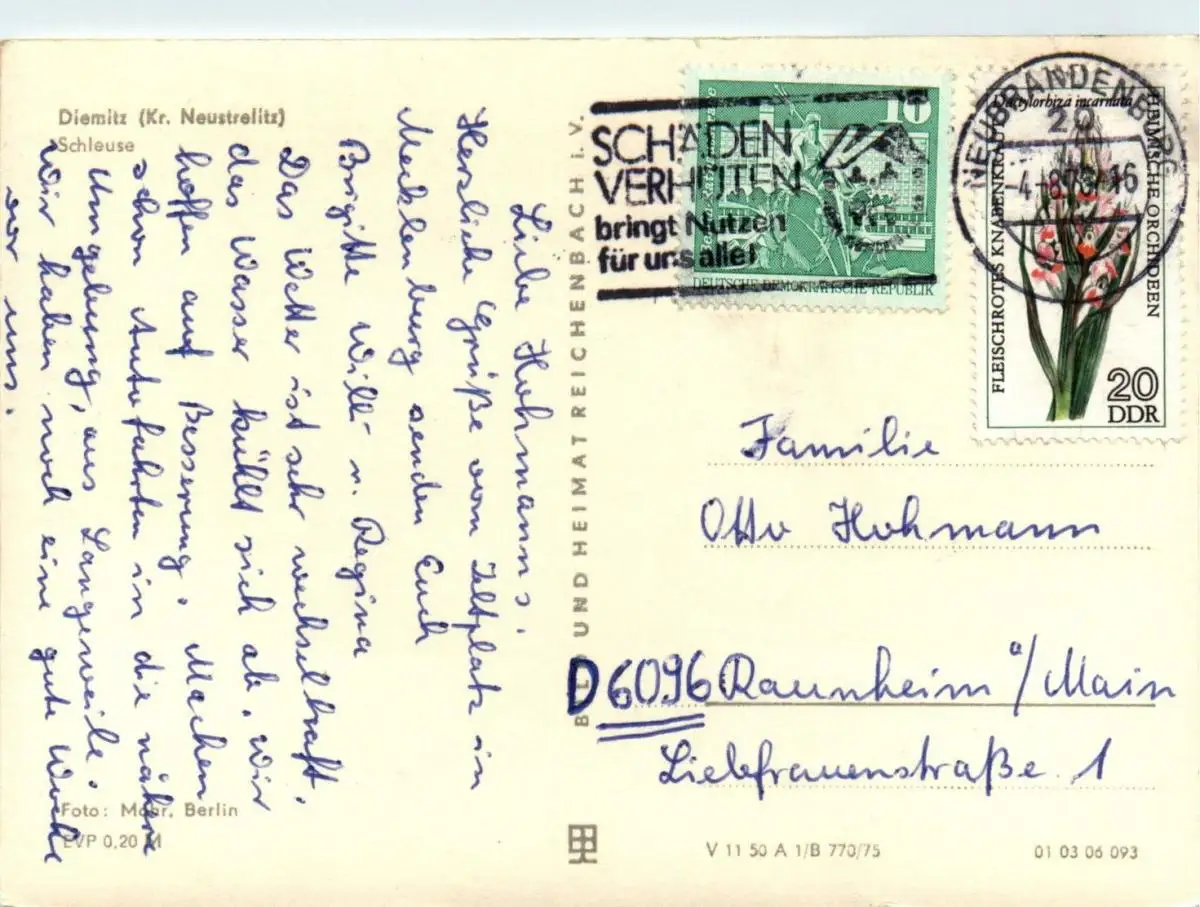 Diemitz (Kr. Neustrelitz)
Schleuse
Liebe Hohmanns!
Herzliche Grüße vom Zeltplatz in
Mecklenburg senden Euch
Brigitte Willi u. Regina
Das Wetter ist sehr wechselhaft,
das Wasser kühlt sich ab. Wir
hoffen auf Besserung. Machen
schon Autofahrten in die nähre
Umgebung, aus Langerweile.
Wir haben noch eine gute Woche
vor uns.
Foto: Mohr, Berlin
EVP 0,20 M
BILD UND HEIMAT REICHENBACH I. V.
SCHÄDEN
VERHÜTEN
bringt Nutzen
für uns alle!
10
DEUTSCHE DEMOKRATISCHE REPUBLIK
NEUBRANDENBURG
20
-4.-8.76-16
Dactylorhiza incarnata
FLEISCHROTES KNABENKRAUT
HEIMISCHE ORCHIDEEN
20
DDR
Familie
Otto Hohmann
D 6096 Raunheim a/Main
Liebfrauenstraße 1
V 11 50 A 1/B 770/75
01 03 06 093